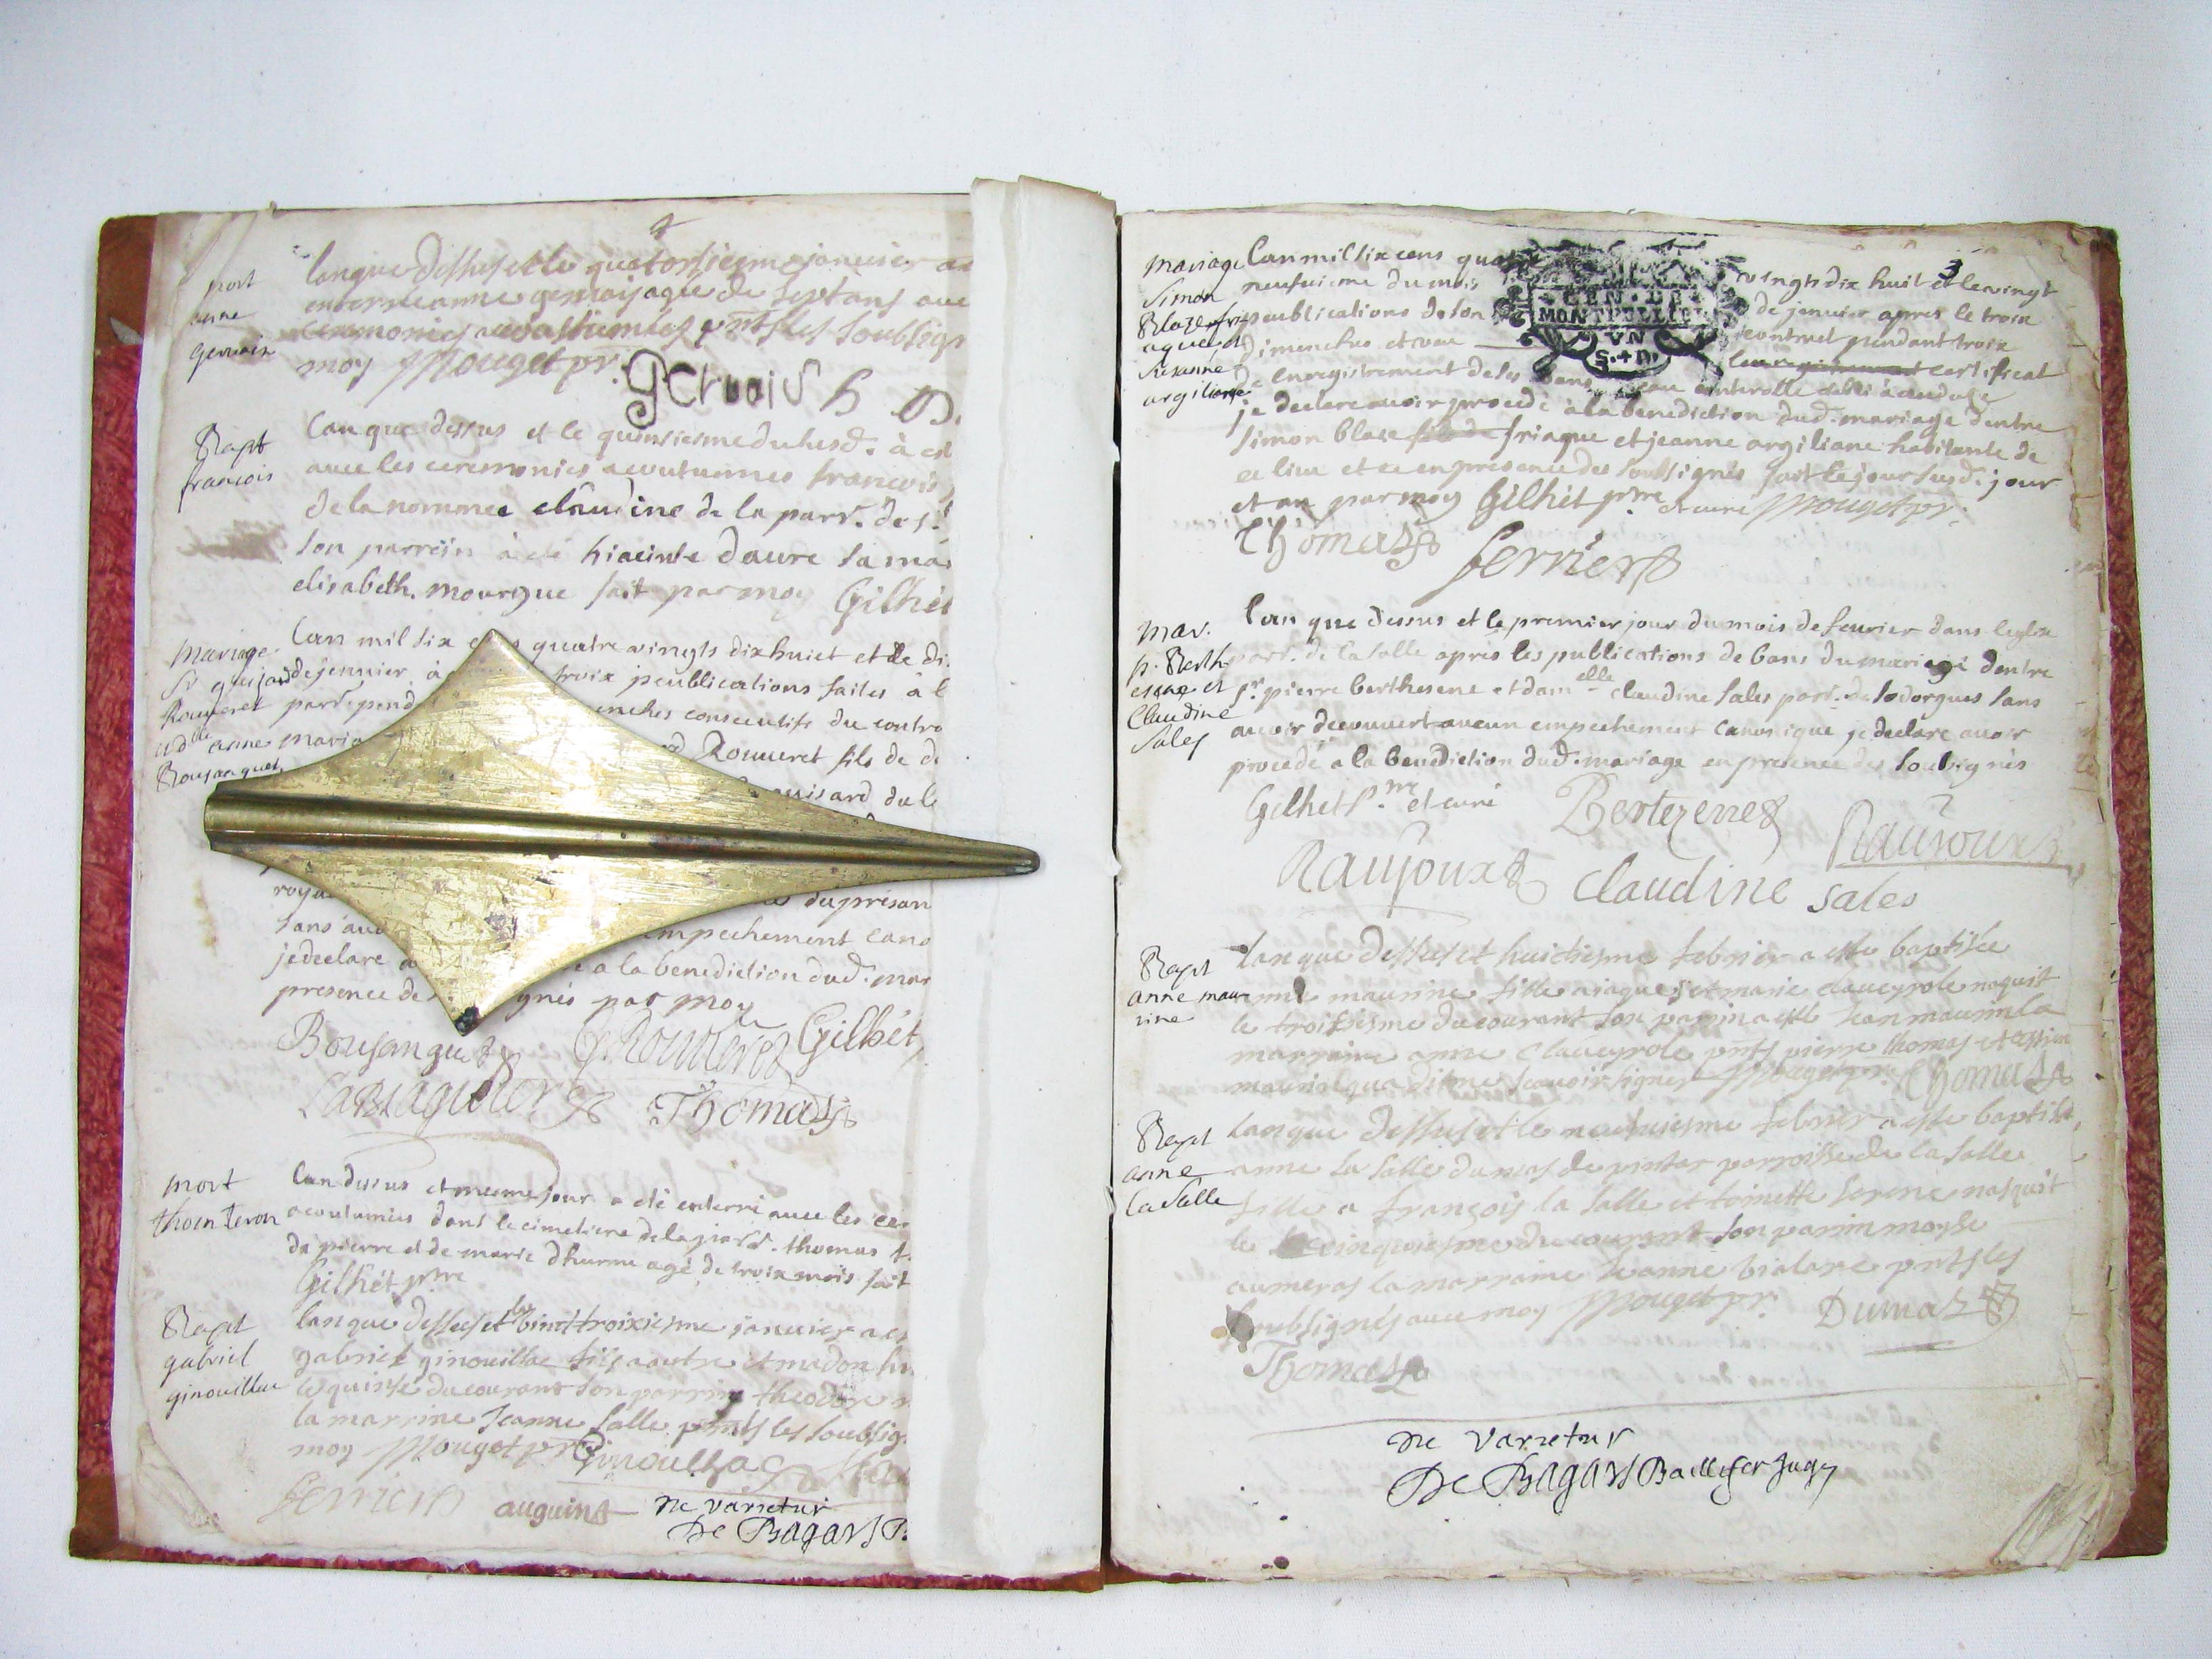 mort
anne
gervais
lanque dessus et le quatorsiesme janvier a
enterree anne gervais agee de sept ans ave
ceremonies acoustumées pnts les soubsig
moy Mouget pr.
Gervais
Bapt
francois
Lan que dessus et le quinsiesme dusd. à est
avec les ceremonies acoutumees francois
de la nommee claudine de la parr. de s.t
son parrein à été hiacinte daure sa mar
elisabeth mourgue fait par moy Gilhet
Mariage
Sr guisard
Rouveret
et dlle anne
Bousanquet
Lan mil six quatre vingts dix huict et le di
de jenvier à trois publications faites à l
parr. pend anches consecutifs du contro
maria
Rouveret fils de d
ouisard du l
roya du présan
sans au empechement cano
je declare a e a la benediction dud. mar
presence de gnés par moy
Bousanquet Rouveret Gilhet
Lablaquiere Thomas
mort
thom teron
Lan dessus et mesme jour a été enterré avec les cer
acoutumées dans le cimetiere de la parr. thomas t
de pierre et de marie dhurme agé de trois mois fait
Gilhet ptre
Bapt
gabriel
ginouillac
lan que dessus et le vint troixiesme janvier a es
gabriel ginouillac fils a autre et madon
le quinse du courant son parrin theodore
la marrine Jeanne Salle pnts les soubsig
moy Mouget pr Ginouilhac
ferrier auguin ne varietur
De Bagars B
3
mariage
Simon
Blaze fri
aque et
Susanne
argiliane
Lan mil six cens quatre vingts dix huit et le vingt
neufuieme du mois de janvier apres le troix
publications de son contrat pendant troix
dimenches et veu certificat
enregistrement de ses bans au controlle
GEN. DE
MONTPELLIE
VN
S.+D.
je declare avoir procedé à la benediction dud. mariage dentre
Simon blaze friaque et jeanne argiliane habitante de
ce lieu et ce en presence des soussignés fait le jour susd. jour
et an par moy Gilhet ptre et curé Mouget pr.
Thomas ferrier
mar.
p. Berth
esene et
Claudine
Sales
Lan que dessus et le premier jour du mois de fevrier dans leglise
parr. de la Salle apres les publications de bans du mariage dentre
sr. pierre berthesene et damelle claudine sales parr. de sodorgues sans
avoir decouvert aucun empechement canonique je declare avoir
procedé a la benediction dud. mariage en presence des soubsignés
Gilhet p.tre et curé Bertezene Raujoux
Raujoux Claudine Sales
Bapt
anne mau
rine
lan que dessus et huictiesme febvrier a este baptisée
anne maurine fille a jaques et marie claveyrole naquit
le troisiesme du courant son parrin a esté Jean maurin la
marraine anne Claveyrole pnts pierre thomas et
maurin qua dit ne scavoir signer Mouget pr. Thomas
Bapt
anne
la Salle
lan que dessus et le neufuiesme febvrier a este baptisée
anne la salle du mas de parroisse de la Salle
fille a françois la Salle et toinette nasquit
le cinquiesme du courant son parrin moyse
aumeras la marraine Jeanne pnts les
soubsignés avec moy Mouget pr. Dumas
Thomas
ne varietur
De Bagars Baillif er Juge